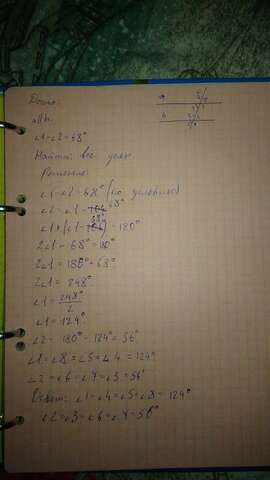 Дано:
a||b.
∠1-∠2=68°
Найти все углы
Решение:
∠1-∠2=68° (по условию)
∠2=∠1-68°
∠1+(∠1-68°)=180°
2∠1-68°=180°
2∠1=180°+68°
2∠1=248°
∠1=248°/2
∠1=124°
∠2= 180°-124°=56°
∠1=∠8=∠5=∠4=124°
∠2=∠6=∠7=∠3=56°
Ответ: ∠1=∠4=∠5=∠8=124°
∠2=∠3=∠6=∠7=56°
a
b